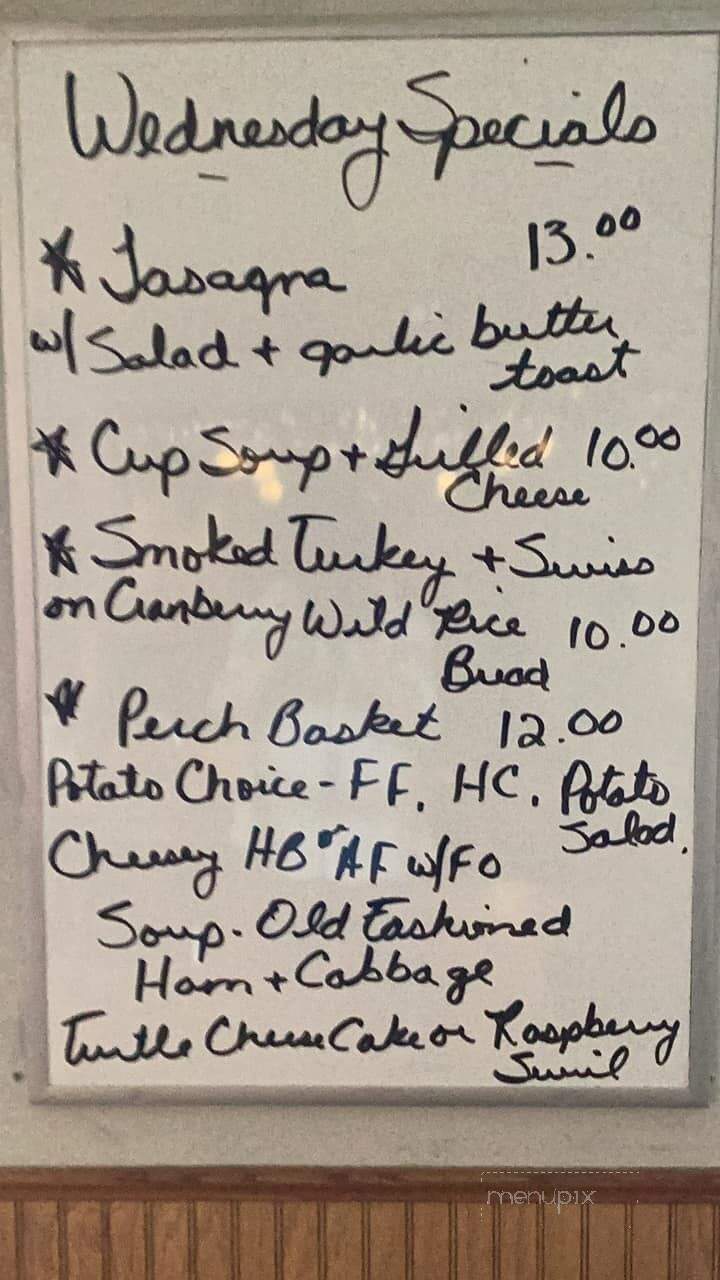 Wednesday Specials
* Lasagna 13.00
w/ Salad + garlic butter
toast
* Cup Soup + Grilled 10.00
Cheese
* Smoked Turkey + Swiss
on Cranberry Wild Rice 10.00
Bread
* Perch Basket 12.00
Potato Choice - FF. HC. Potato
Salad.
Cheesy HB or AF w/FO
Soup - Old Fashioned
Ham + Cabbage
Turtle Cheese Cake or Raspberry
Swirl
menupix